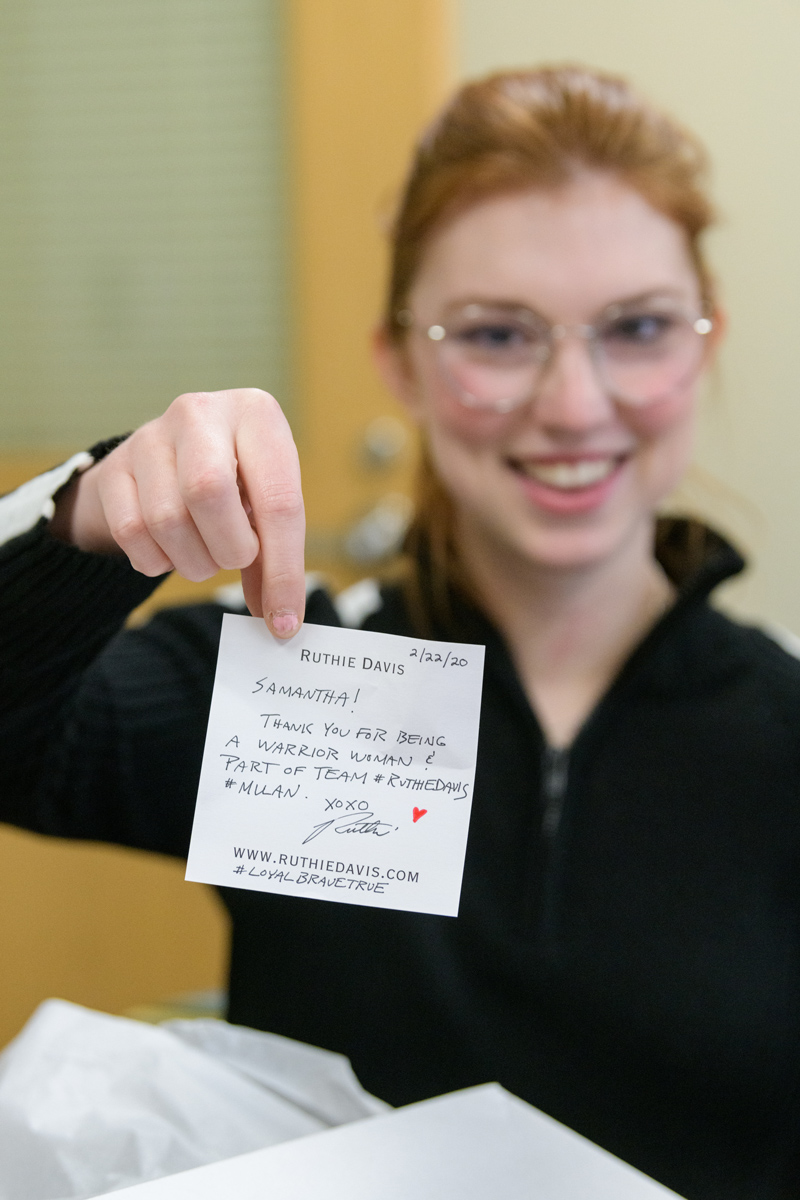 RUTHIE DAVIS 2/22/20
SAMANTHA!
THANK YOU FOR BEING
A WARRIOR WOMAN &
PART OF TEAM #RUTHIEDAVIS
#MULAN.
XOXO
Ruthie
WWW.RUTHIEDAVIS.COM
#LOYALBRAVETRUE